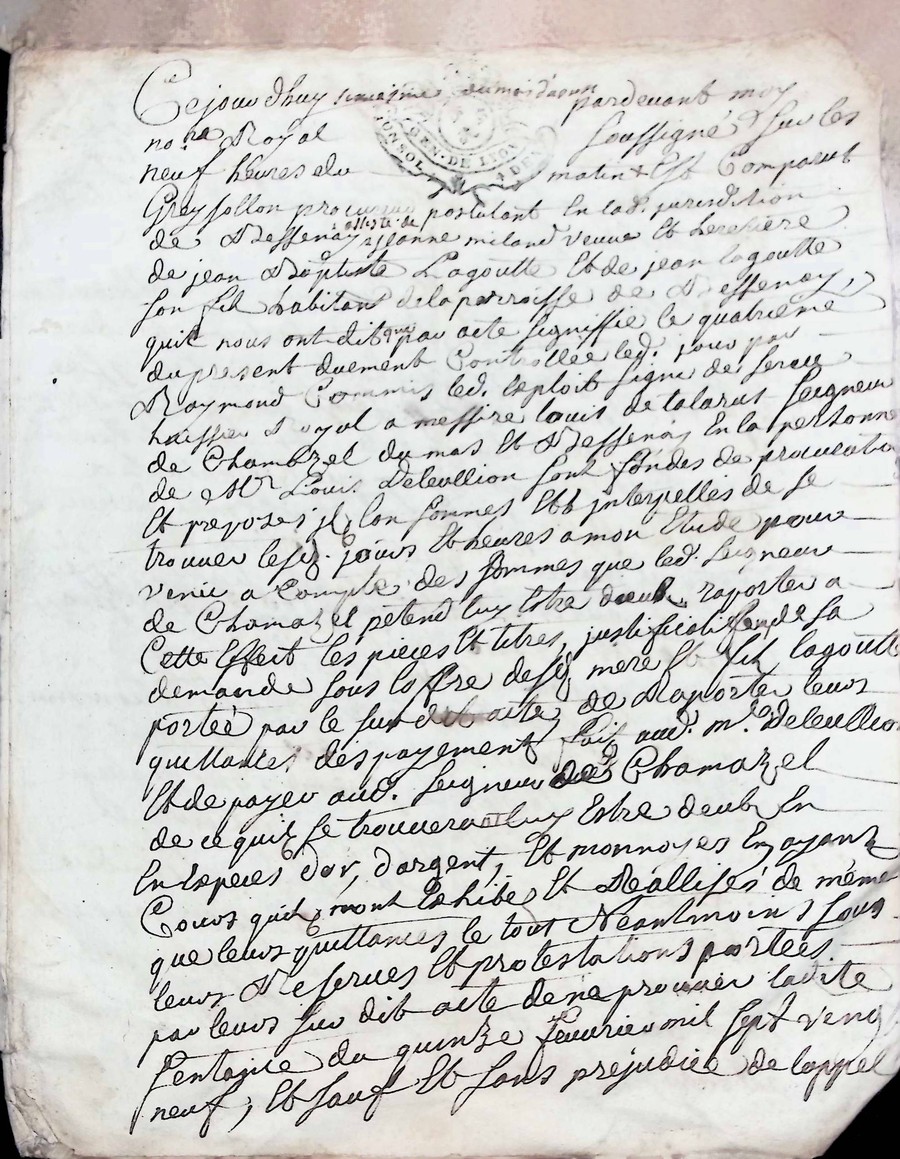 Cejourdhuy sixiesme du mois d'aoust pardevant moy
no.re Royal soussigné Sur les
GEN. DE LYON
neuf heures du matin Est Comparut
Greysollon procureur postulant En lad. jurisdition
de Bessenay assisté de jeanne miland veuve Et heretiere
de jean Baptiste Lagoutte Et de jean lagoutte
son fil habitans de la parroisse de Bessenay,
quil nous ont dit que par acte signiffié le quatrieme
du present duement Controllée led. jour par
Raymond Commis led. Exploit signé de
huissier Royal a messire louis de talarus Seigneur
de Chamazel du mas Et Bessenay En la personne
de Mr Louis Deleullion sont fondés de procuration
Et preposés il lon sommés Et interpellés de se
trouver lesd. jours Et heures a mon Etude pour
venir a Compte des sommes que led. Seigneur
de Chamazel pétend luy Estre deub raporter a
Cette Effect les pieces Et titres, justificatif de sa
demande sous loffre desd. mere Et fil lagoutte
portée par le susdit acte de Raporter leurs
quittances des payement fait aud. mr. Deleullion
Et de payer aud. Seigneur de Chamazel
de ce quil se trouvera luy Estre deub En
En Especes d'or, d'argent, Et monnoyes En ayant
Cours quil mont Exhibé Et Réallisés de méme
que leurs quittances le tout Néantmoins sous
leurs Reserves Et protestations portées
par leurs sus dit acte de ne prouver ladite
sentance du quinze feuvrier mil sept vengt
neuf, Et sauf Et sans préjudice de lappel